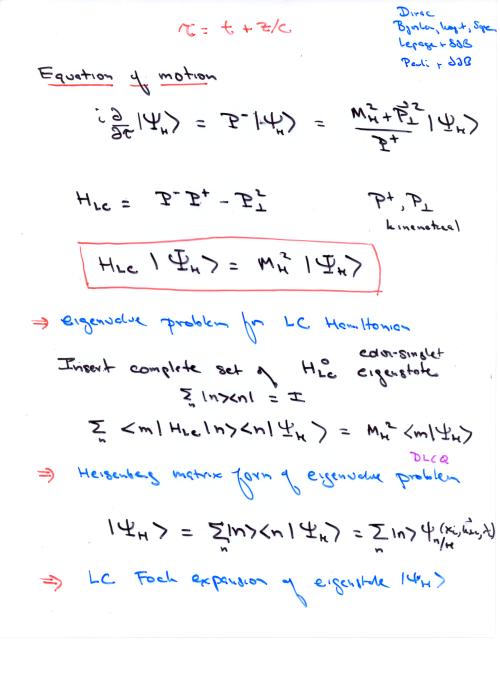 τ = t + z/c
Dirac
Bjorken, Kogut, Soper
Lepage + SJB
Pauli + SJB
Equation of motion
i ∂/∂τ |Ψ_H> = P⁻|Ψ_H> = (M_H² + P⃗_⊥²)/P⁺ |Ψ_H>
H_LC = P⁻P⁺ − P_⊥²
P⁺, P_⊥
kinematical
H_LC |Ψ_H> = M_H² |Ψ_H>
⇒ eigenvalue problem for LC Hamiltonian
Insert complete set of H_LC⁰ color-singlet eigenstate
Σ_n |n><n| = I
Σ_n <m|H_LC|n><n|Ψ_H> = M_H² <m|Ψ_H>
DLCQ
⇒ Heisenberg matrix form of eigenvalue problem
|Ψ_H> = Σ_n |n><n|Ψ_H> = Σ_n |n> ψ_n/H (x_i, k⃗_⊥i, λ_i)
⇒ LC Fock expansion of eigenstate |Ψ_H>